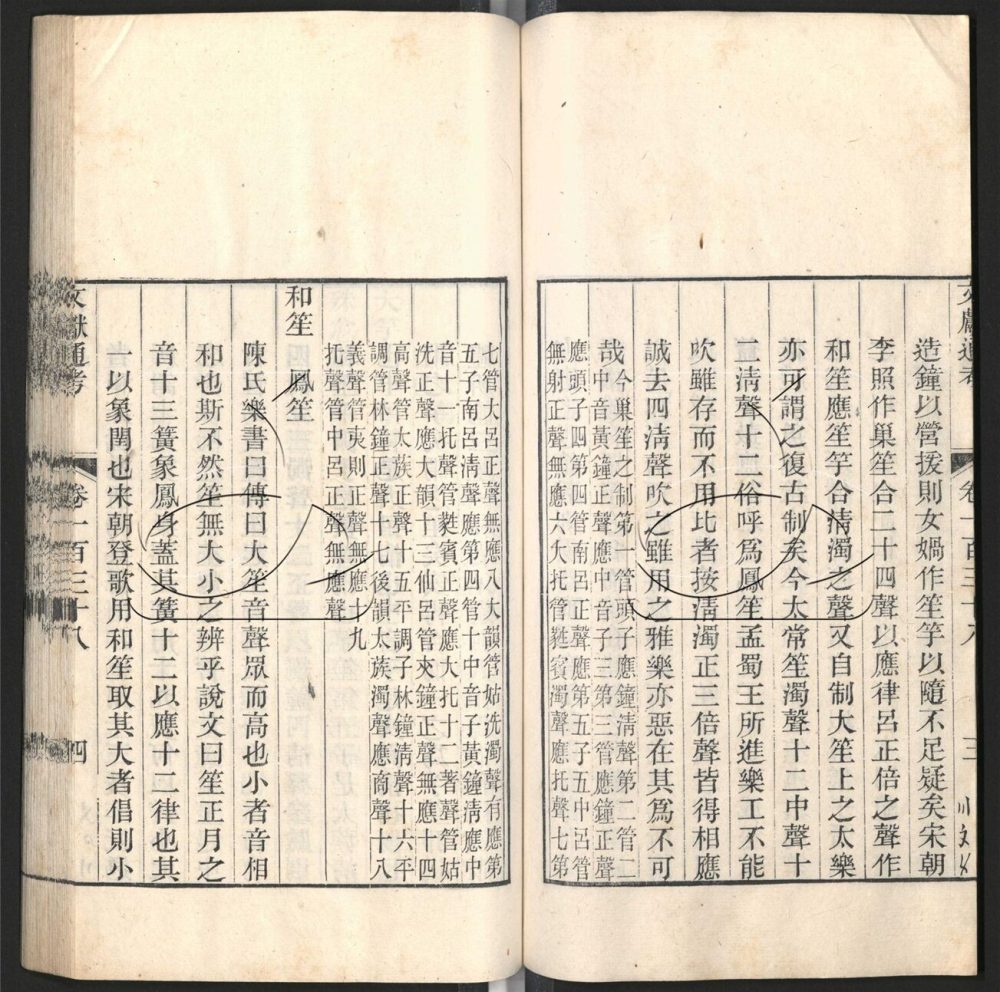 文獻通考 卷一百三十八 三
造鐘以營援則女媧作笙竽以隨不足疑矣宋朝
李照作巢笙合二十四聲以應律呂正倍之聲作
和笙應笙竽合清濁之聲又自制大笙上之太樂
亦可謂之復古制矣今太常笙濁聲十二中聲十
二清聲十二俗呼爲鳳笙孟蜀王所進樂工不能
吹雖存而不用比者按清濁正三倍聲皆得相應
誠去四清聲吹之雖用之雅樂亦惡在其爲不可
哉
今巢笙之制第一管頭子應鐘清聲第二管二
中音黃鐘正聲應中音子三第三管應鐘正聲
應頭子四第四管南呂正聲應第五子五中呂管
無射正聲無應六大托管蕤賓濁聲應托聲七第
七管大呂正聲無應八大韻管姑洗濁聲有應第
五子南呂清聲應第四管十中音子黃鐘清應中
音十一托聲管蕤賓正聲應大托十二著聲管姑
洗正聲應大韻十三仙呂管夾鐘正聲無應十四
高聲管太族正聲十五平調子林鐘清聲十六平
調管林鐘正聲十七後韻太族濁聲應商聲十八
義聲管夷則正聲無應十九
托聲管中呂正聲無應聲
和笙 鳳笙
陳氏樂書曰傳曰大笙音聲眾而高也小者音相
和也斯不然笙無大小之辨乎說文曰笙正月之
音十三簧象鳳身蓋其簧十二以應十二律也其
一以象閏也宋朝登歌用和笙取其大者倡則小
文獻通考 卷一百三十八 四